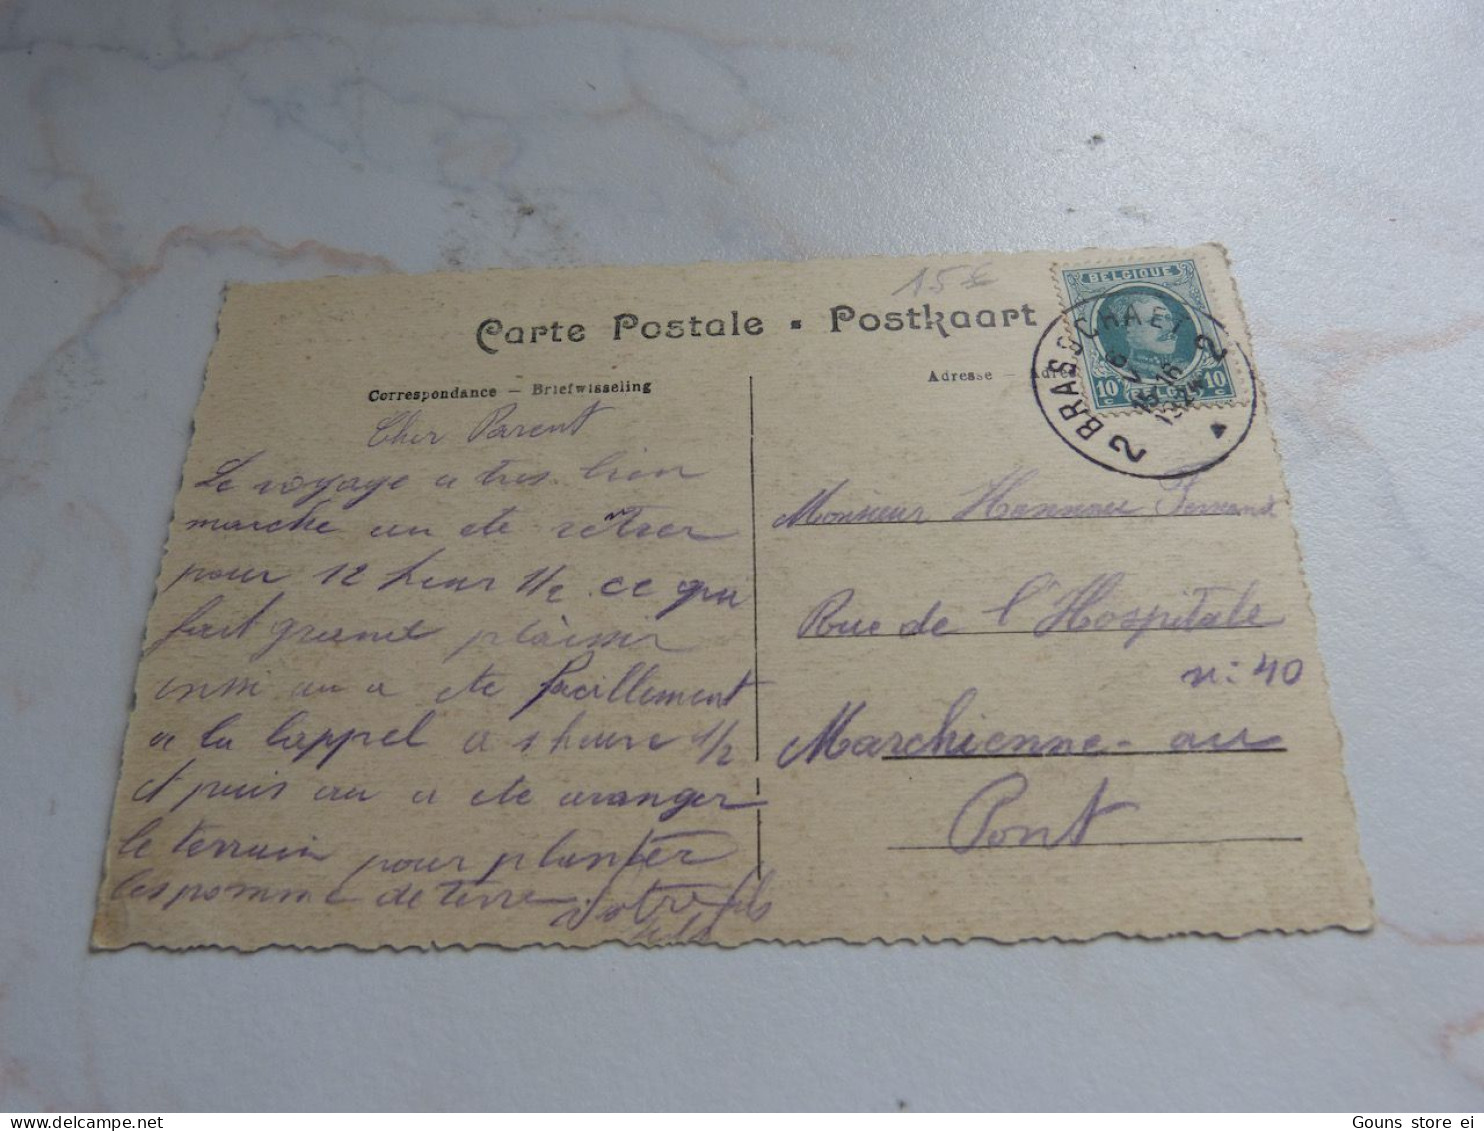 15 €
Carte Postale Postkaart
BELGIQUE
10 c BELGIË 10 c
2 BRASSCHAET 2
16
1925
Correspondance — Briefwisseling
Adresse —
Cher Parent
Le voyage a tres bien
marche on ete
pour 12 heur 1/2 ce qui
fait grand plaisir
on a ete facillement
a la lappel a 1 heure 1/2
et puis on a ete aranger
le terrain pour planter
les pomme de terre Votre fils
Monsieur Hannau Fernand
Rue de l'Hospitale
n: 40
Marchienne-au
Pont
Gouns store ei